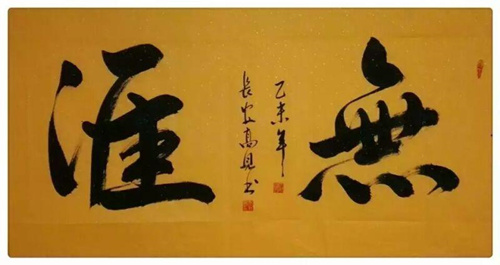 無涯
乙未年
長安高見书